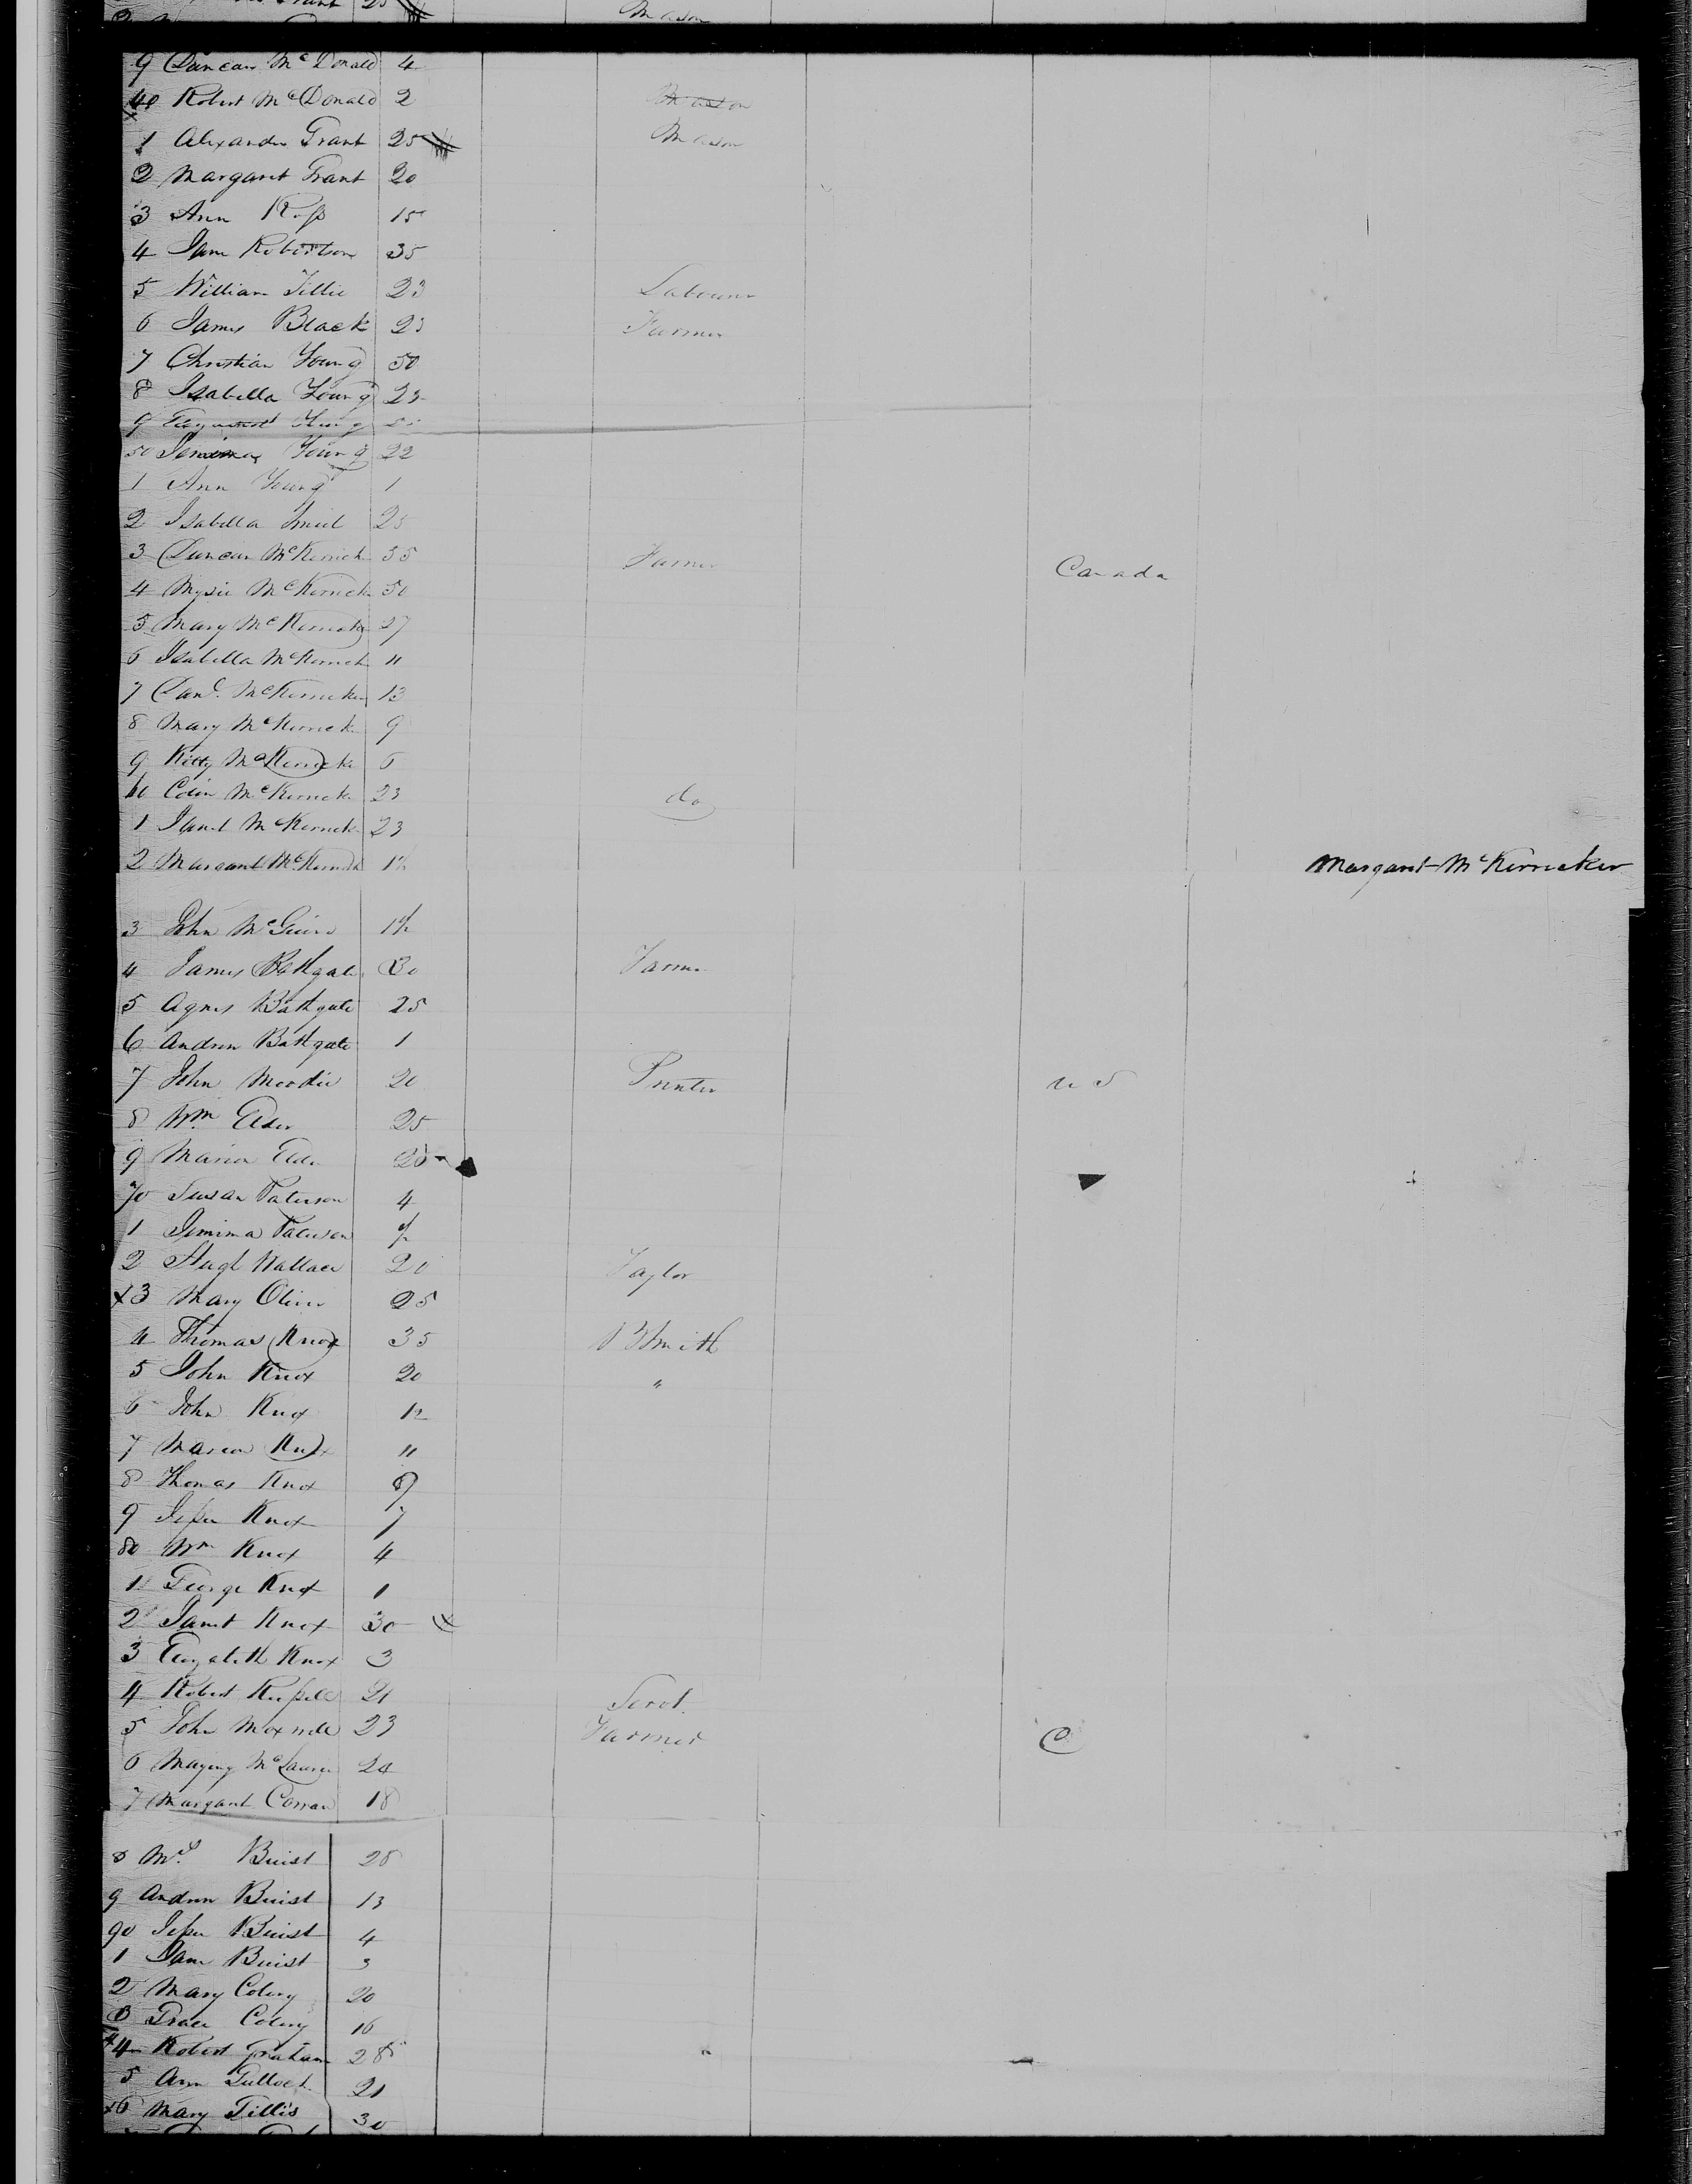 Mason
9 Duncan McDonald 4
40 Robert McDonald 2 Mason
1 Alexander Grant 25 Mason
2 Margaret Grant 20
3 Ann Ross 15
4 Jane Robertson 35
5 William Tillie 23 Labourer
6 James Black 23 Farmer
7 Christian Young 50
8 Isabella Young 23
9 Young
50 Jemima Young 22
1 Ann Young 1
2 Isabella 25
3 Duncan McKerricker 55 Farmer Canada
4 Mysie McKerricker 50
5 Mary McKerricker 27
6 Isabella McKerricker 11
7 Danl. McKerricker 13
8 Mary McKerrick 9
9 Kitty McKerricke 6
60 Colin McKerrick 23 do
1 Janet McKerrick 23
2 Margaret McKerrick 1½ Margaret McKerricker
3 John
4 James Bathgate 30 Farmer
5 Agnes Bathgate 25
6 Andrew Bathgate 1
7 John Moodie 20 Printer U S
8 Wm Elder 25
9 Marion Elder 20
70 Susan Paterson 4
1 Jemima Paterson ½
2 Hugh Wallace 20 Taylor
x3 Mary Oliver 25
4 Thomas Knox 35 BSmith
5 John Knox 20 "
6 John Knox 12
7 Marion Knox 11
8 Thomas Knox 9
9 Jessie Knox 7
80 Wm Knox 4
1 George Knox 1
2 Janet Knox 30 x
3 Elizabeth Knox 3
4 Robert Russell 21 Servt.
5 John 23 Farmer C
6 McLaurin 24
7 Margaret Curran 18
8 Mrs. Buist 28
9 Andrew Buist 13
90 Jessie Buist 4
1 Jane Buist 3
2 Mary 20
3 Grace 16
x4 Robert Graham 28
5 Ann Tulloch 21
x6 Mary Tillis 30